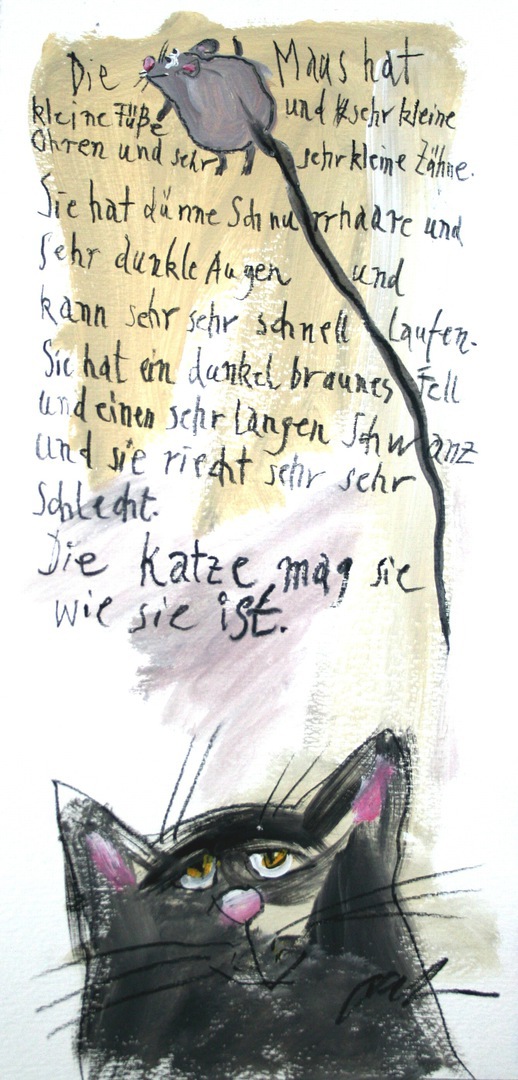 Die Maus hat
kleine Füße und sehr kleine
Ohren und sehr sehr kleine Zähne.
Sie hat dünne Schnurrhaare und
sehr dunkle Augen und
kann sehr sehr schnell laufen.
Sie hat ein dunkel braunes Fell
und einen sehr langen Schwanz
und sie riecht sehr sehr
schlecht.
Die Katze mag sie
wie sie ist.